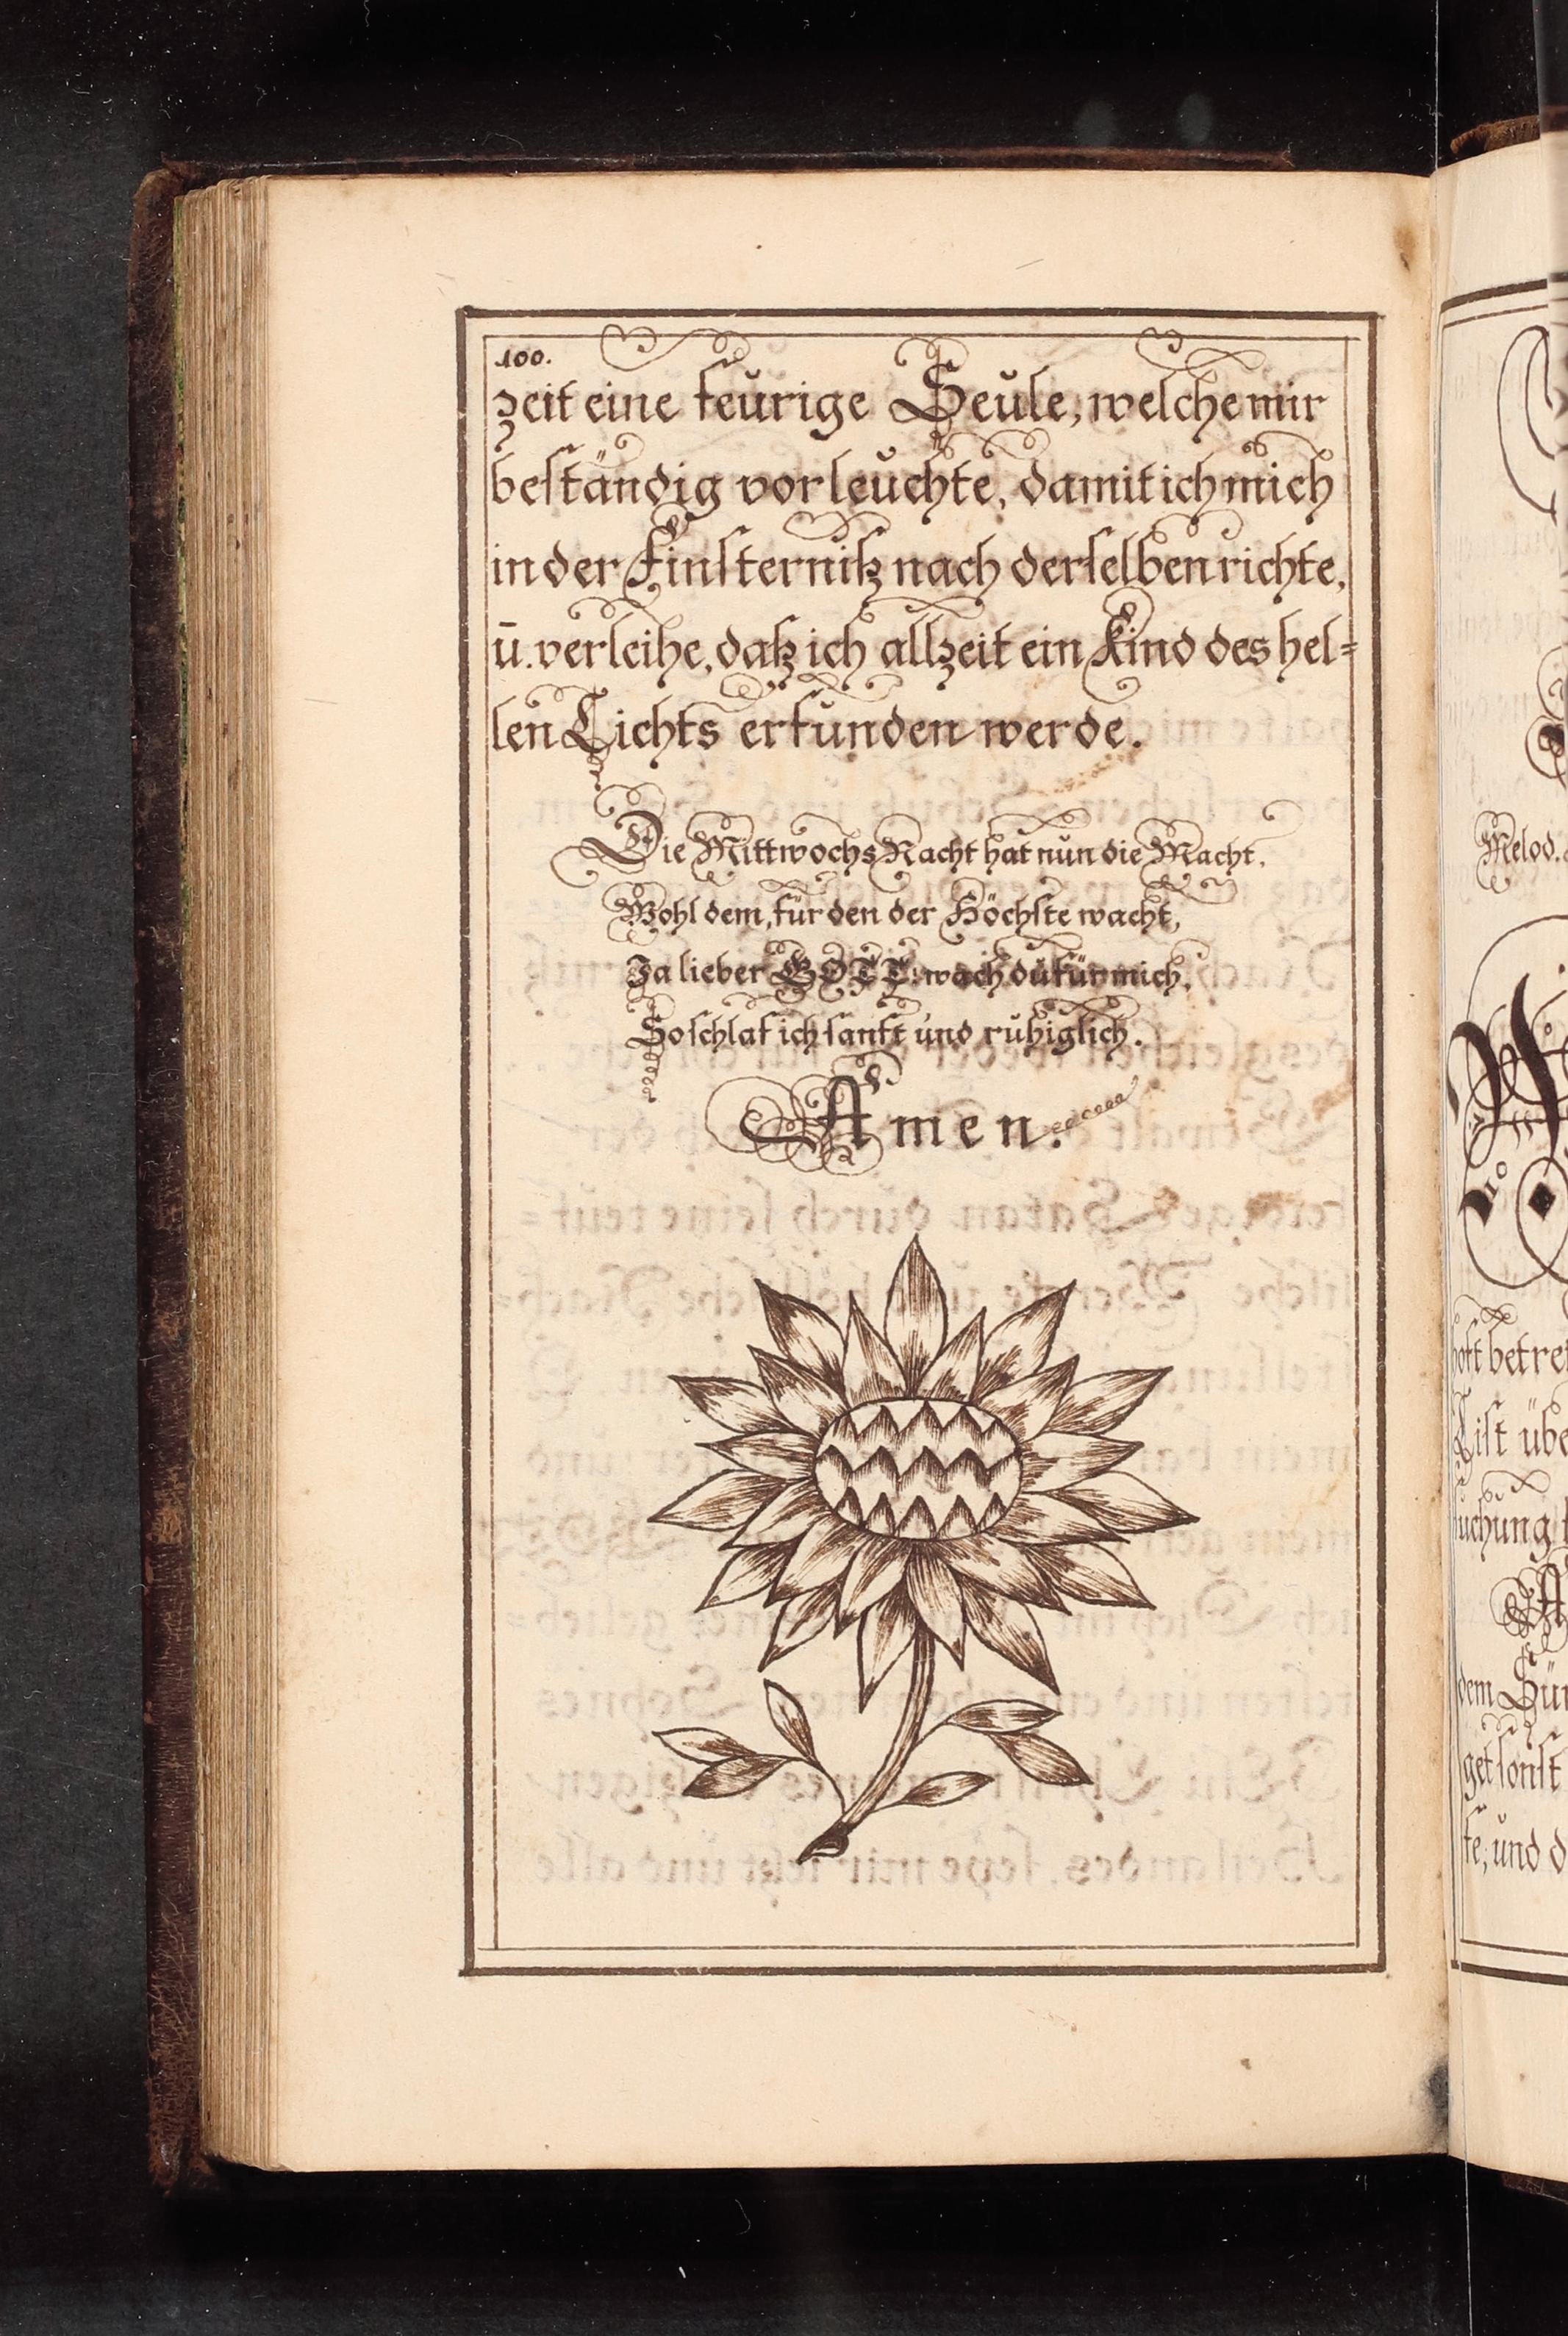 100.
zeit eine feurige Seule, welche mir
beständig vorleuchte, damit ich mich
in der Finsterniß nach derselben richte,
ū. verleihe, daß ich allzeit ein Kind des hel=
len Lichts erfunden werde.
Die Mittwochs Nacht hat nun die Macht,
Wohl dem, für den der Höchste wacht,
Ja lieber GOTT: wach du für mich,
So schlaf ich sanft und ruhiglich.
Amen.
Melod.
betre
List übe
suchung
dem Sün
get sonst
te, und d